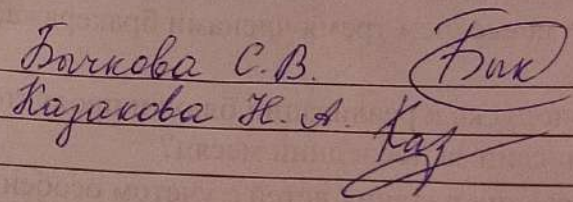 Бычкова С.В. Бык
Казакова Н.А. Каз